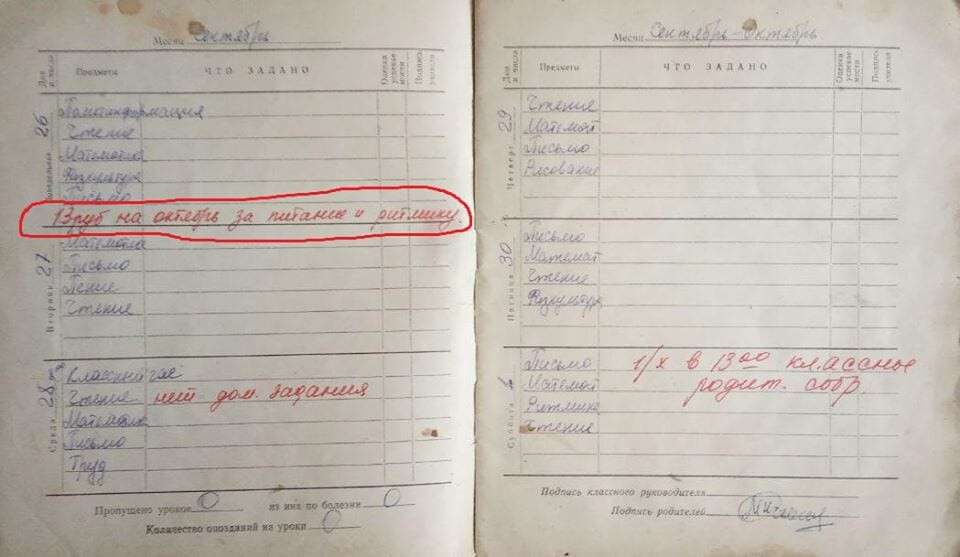 Месяц Сентябрь
Дни и числа Предметы ЧТО ЗАДАНО Оценка успеваемости Подпись учителя
Понедельник 26
Политинформация
Чтение
Математика
Физкультура
Письмо
13 руб на октябрь за питание и ритмику.
Вторник 27
Математика
Письмо
Пение
Чтение
Среда 28
Классный час
Чтение нет дом. задания
Математика
Письмо
Труд
Пропущено уроков 0 из них по болезни 0
Количество опозданий на уроки 0
Месяц Сентябрь-Октябрь
Дни и числа Предметы ЧТО ЗАДАНО Оценка успеваемости Подпись учителя
Четверг 29
Чтение
Математ
Письмо
Рисование
Пятница 30
Письмо
Математ
Чтение
Физкультура
Суббота 1
Письмо 1/X в 13 00 классное
Математ родит. собр.
Ритмика
Чтение
Подпись классного руководителя
Подпись родителей